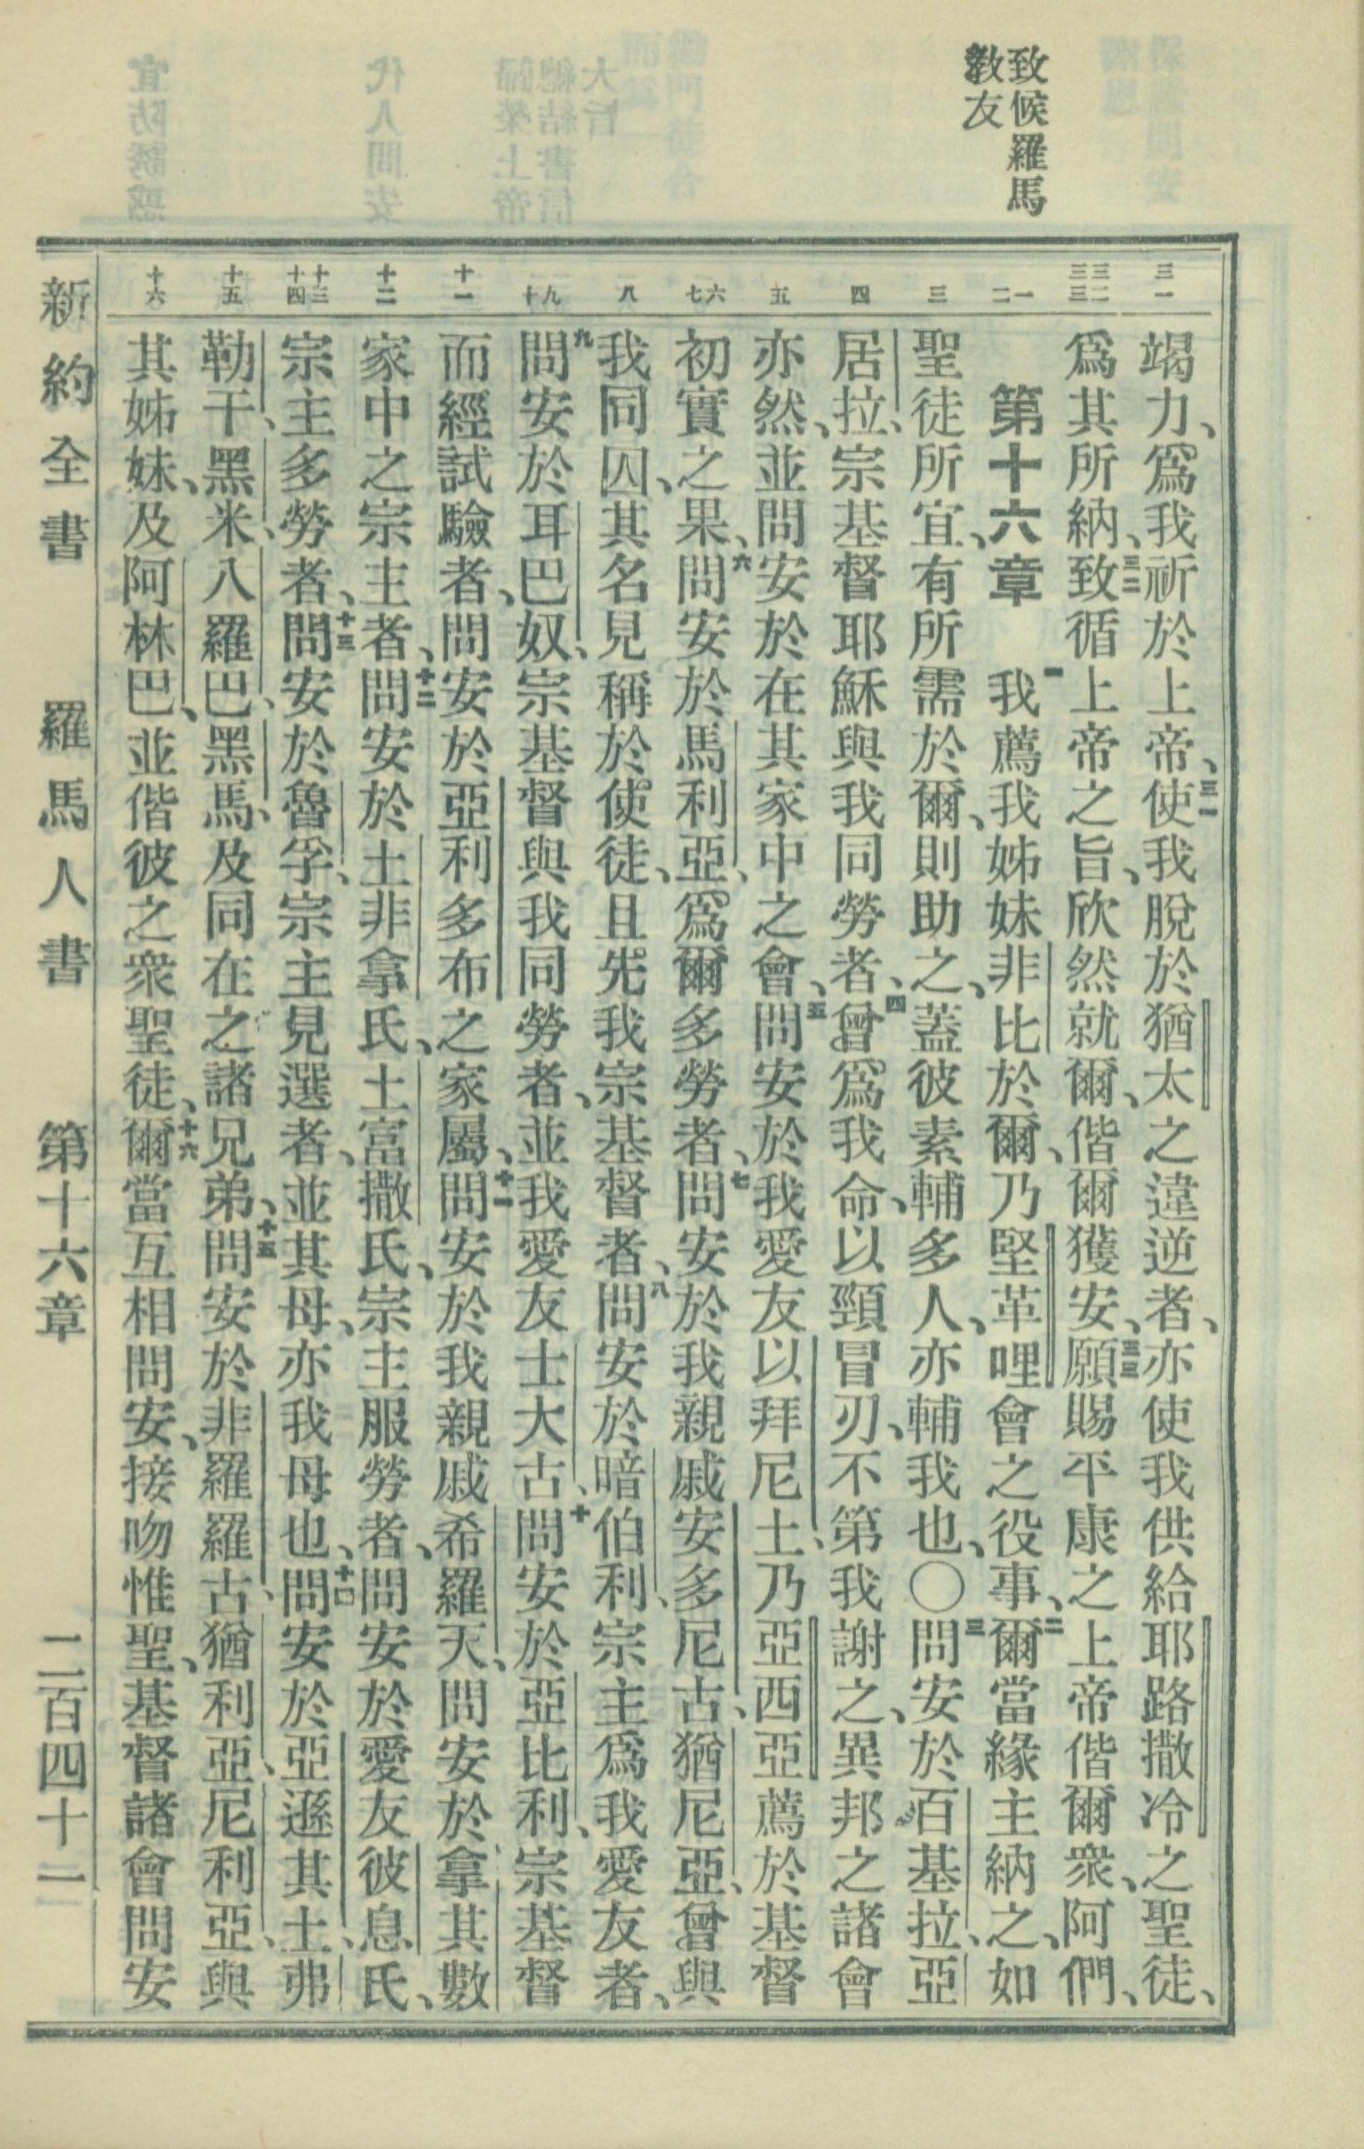 致候羅馬
教友
三一
三二 三三
一 二
三
四
五
六 七
八
九 十
十一
十二
十三 十四
十五
十六
竭力、爲我祈於上帝、三一使我脫於猶太之違逆者、亦使我供給耶路撒冷之聖徒、
爲其所納、三二致循上帝之旨、欣然就爾、偕爾獲安、三三願賜平康之上帝偕爾衆、阿們、
第十六章 一我薦我姊妹非比於爾、乃堅革哩會之役事、二爾當緣主納之、如
聖徒所宜、有所需於爾、則助之、蓋彼素輔多人、亦輔我也、〇三問安於百基拉、亞
居拉、宗基督耶穌與我同勞者、四曾爲我命、以頸冒刃、不第我謝之、異邦之諸會
亦然、並問安於在其家中之會、五問安於我愛友以拜尼土、乃亞西亞薦於基督
初實之果、六問安於馬利亞、爲爾多勞者、七問安於我親戚安多尼古、猶尼亞、曾與
我同囚、其名見稱於使徒、且先我宗基督者、八問安於暗伯利、宗主爲我愛友者、
九問安於耳巴奴、宗基督與我同勞者、並我愛友士大古、十問安於亞比利、宗基督
而經試驗者、問安於亞利多布之家屬、十一問安於我親戚希羅天、問安於拿其數
家中之宗主者、十二問安於土非拿氏、土富撒氏、宗主服勞者、問安於愛友彼息氏、
宗主多勞者、十三問安於魯孚、宗主見選者、並其母、亦我母也、十四問安於亞遜其土、弗
勒干、黑米、八羅巴、黑馬、及同在之諸兄弟、十五問安於非羅羅古、猶利亞、尼利亞、與
其姊妹、及阿林巴、並偕彼之衆聖徒、十六爾當互相問安、接吻惟聖、基督諸會問安
新約全書 羅馬人書 第十六章 二百四十一